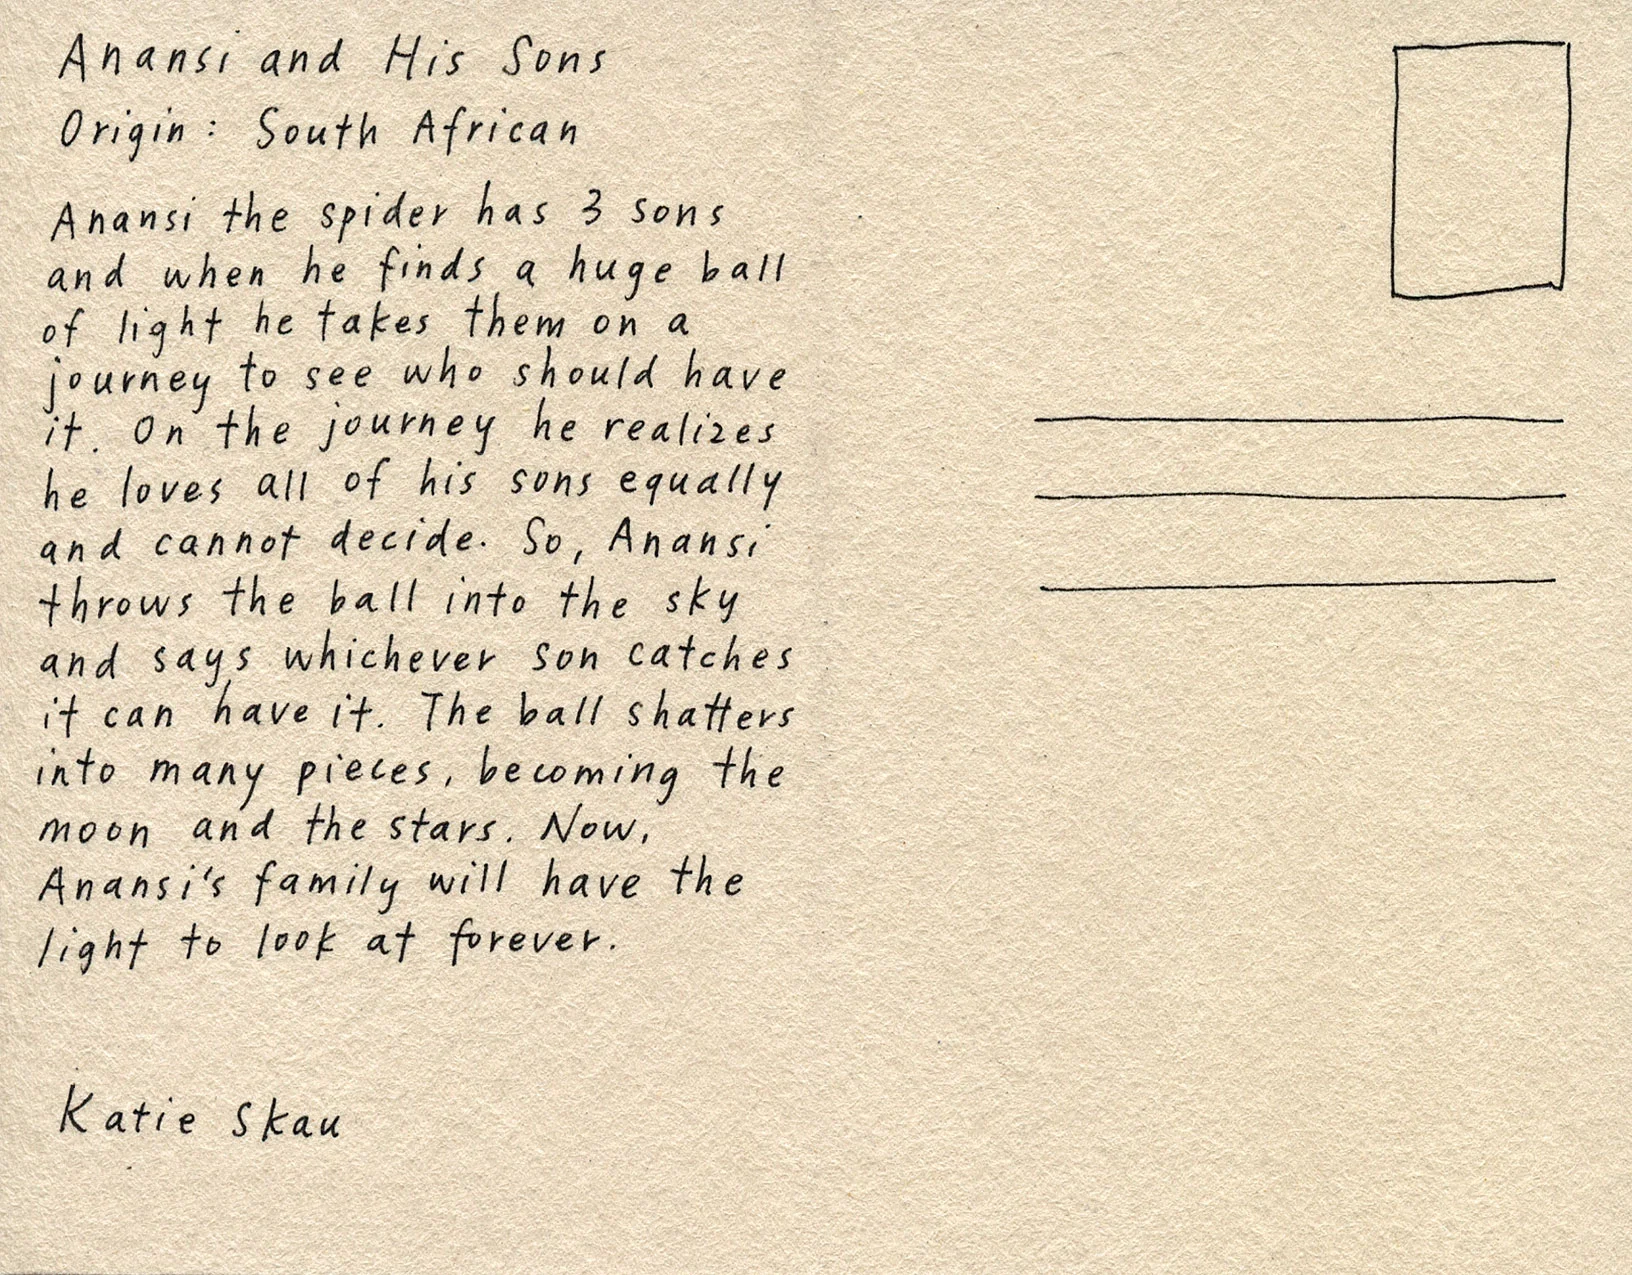 Anansi and His Sons
Origin: South African
Anansi the spider has 3 sons
and when he finds a huge ball
of light he takes them on a
journey to see who should have
it. On the journey he realizes
he loves all of his sons equally
and cannot decide. So, Anansi
throws the ball into the sky
and says whichever son catches
it can have it. The ball shatters
into many pieces, becoming the
moon and the stars. Now,
Anansi's family will have the
light to look at forever.
Katie Skau